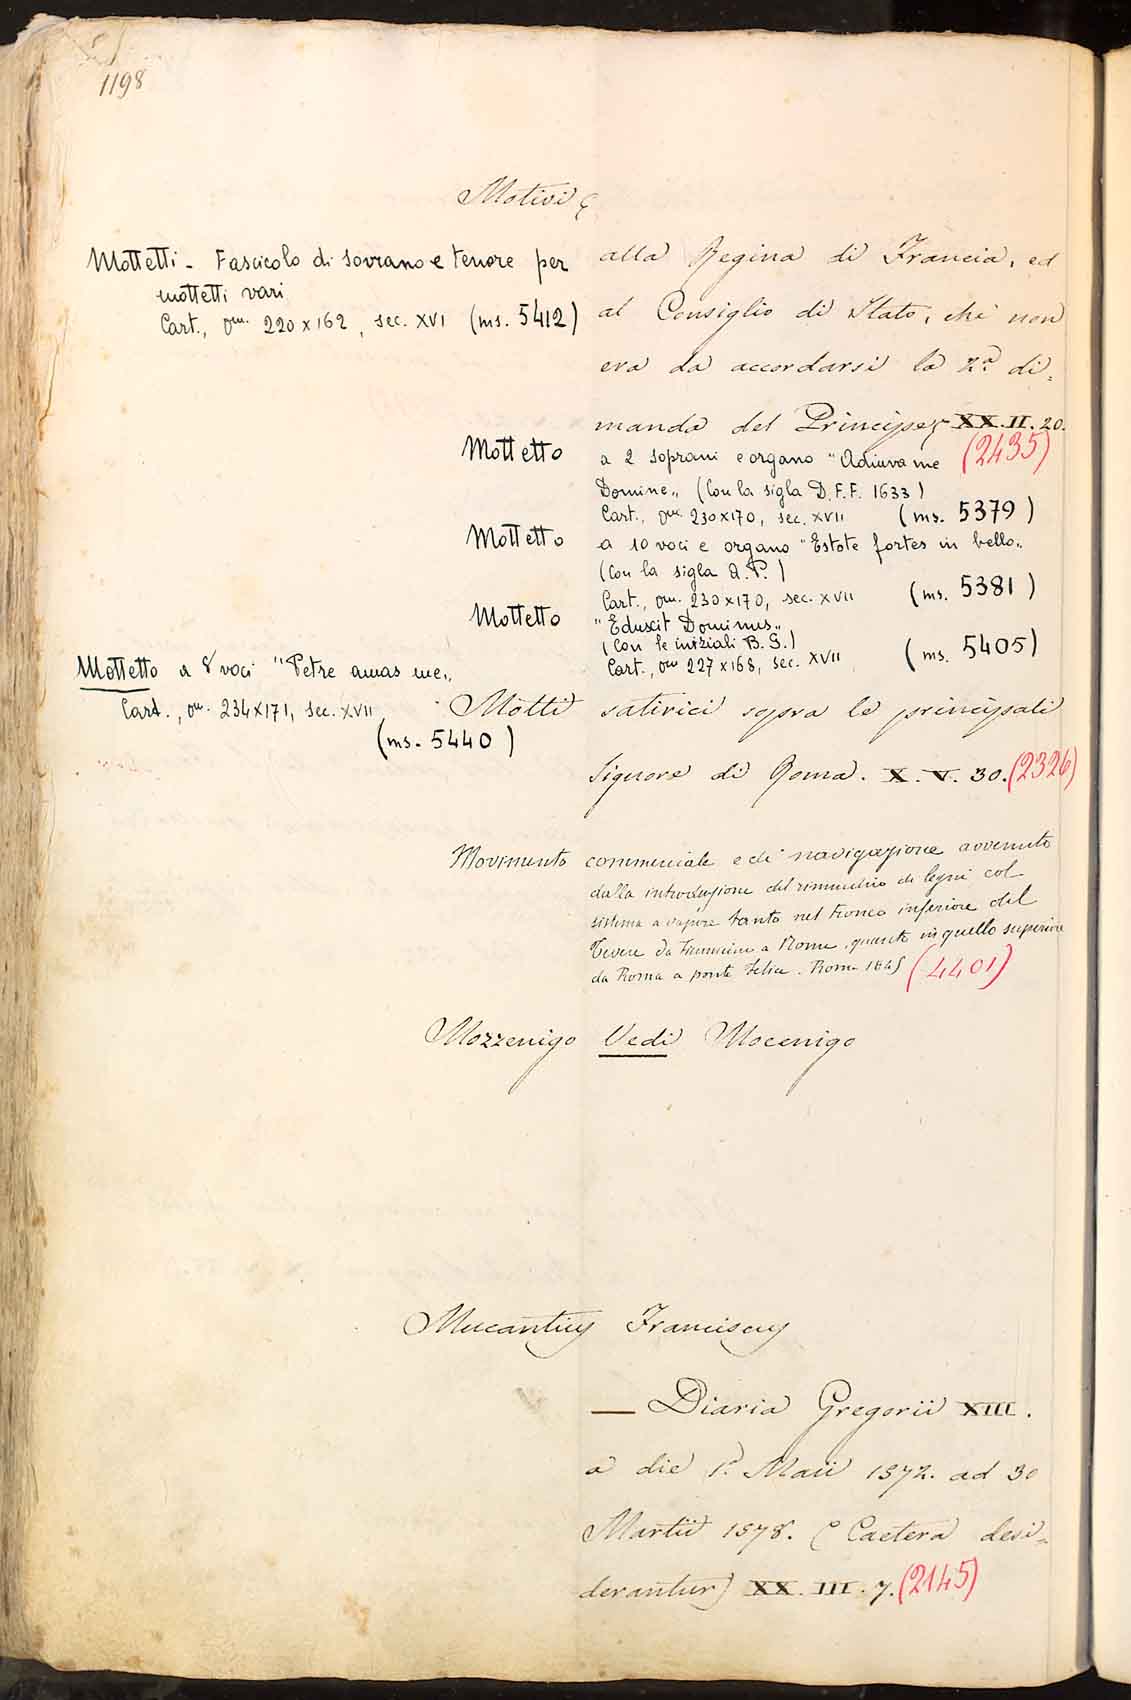 1198
Motivi
Mottetti - Fascicolo di sovrano e tenore per
mottetti vari
Cart., mm. 220x162, sec. XVI (ms. 5412)
alla Regina di Francia, ed
al Consiglio di Stato, che non
era da accordarsi la 2.a di=
manda del Principe XX.II.20.
(2435)
Mottetto a 2 soprani e organo "Adiuva me
Domine" (Con la sigla D.F.F. 1633)
Cart., mm. 230x170, sec. XVII (ms. 5379)
Mottetto a 10 voci e organo "Estote fortes in bello"
(Con la sigla Q.P.)
Cart., mm. 230x170, sec. XVII (ms. 5381)
Mottetto "Eduxit Dominus"
(Con le iniziali B.G.)
Cart., mm 227x168, sec. XVII (ms. 5405)
Mottetto a 8 voci "Petre amas me"
Cart., mm. 234x171, sec. XVII
(ms. 5440)
Motti satirici sopra le principali
Signore di Roma. X.V.30. (2326)
Movimento commerciale e di navigazione avvenuto
dalla introduzione del rimorchio de legni col
sistema a vapore tanto nel tronco inferiore del
Tevere da Fiumicino a Roma, quanto in quello superiore
da Roma a ponte Felice. Roma 1845 (4401)
Mozzenigo Vedi Mocenigo
Mucantius Franciscus
— Diaria Gregorii XIII.
a die 1.a Maii 1572. ad 30
Martii 1578. (Caetera desi=
derantur) XX.III.7. (2145)